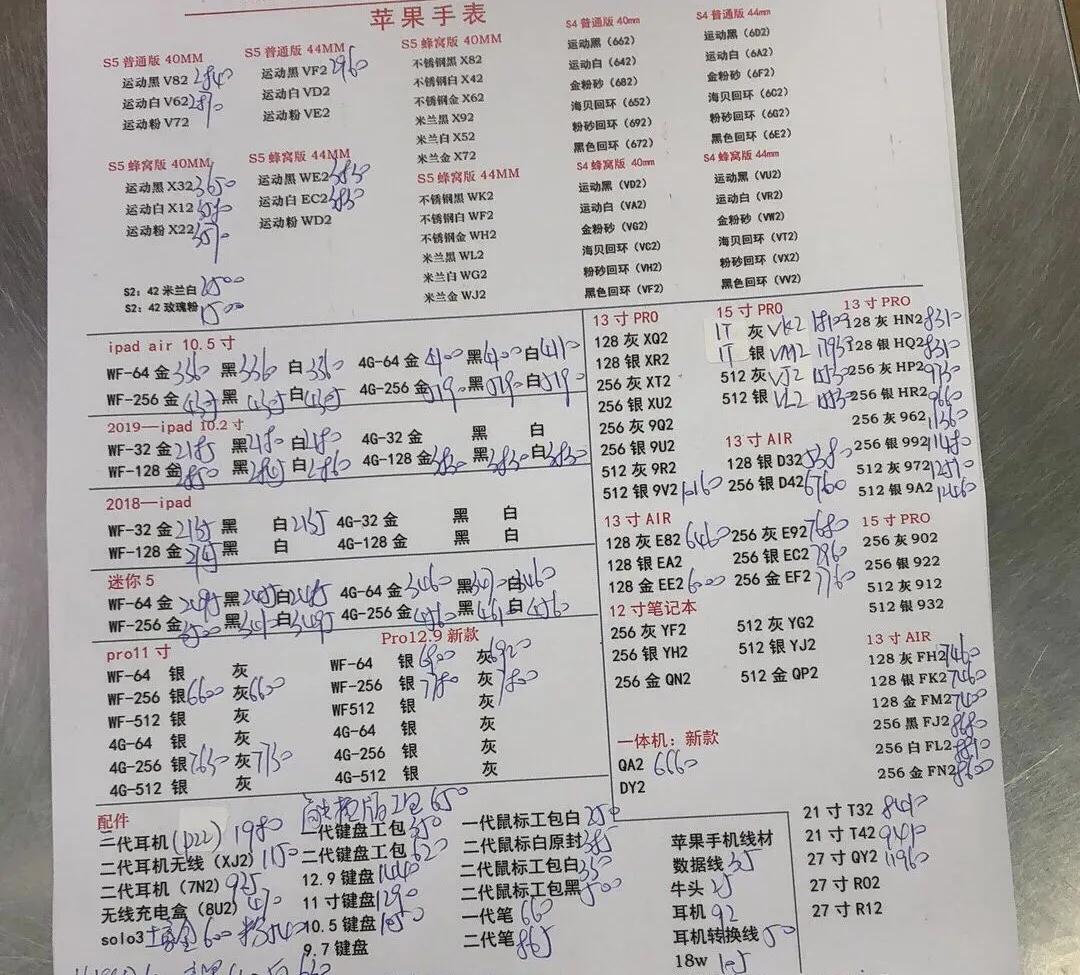 苹果手表
S5 普通版 40MM
运动黑 V82 2840
运动白 V62
运动粉 V72
S5 普通版 44MM
运动黑 VF2 2960
运动白 VD2
运动粉 VE2
S5 蜂窝版 40MM
运动黑 X32 3650
运动白 X12
运动粉 X22
S5 蜂窝版 44MM
运动黑 WE2 3830
运动白 EC2 3830
运动粉 WD2
S2：42 米兰白 2500
S2：42 玫瑰粉 1500
S5 蜂窝版 40MM
不锈钢黑 X82
不锈钢白 X42
不锈钢金 X62
米兰黑 X92
米兰白 X52
米兰金 X72
S5 蜂窝版 44MM
不锈钢黑 WK2
不锈钢白 WF2
不锈钢金 WH2
米兰黑 WL2
米兰白 WG2
米兰金 WJ2
S4 普通版 40mm
运动黑（662）
运动白（642）
金粉砂（682）
海贝回环（652）
粉砂回环（692）
黑色回环（672）
S4 蜂窝版 40mm
运动黑（VD2）
运动白（VA2）
金粉砂（VG2）
海贝回环（VC2）
粉砂回环（VH2）
黑色回环（VF2）
S4 普通版 44mm
运动黑（6D2）
运动白（6A2）
金粉砂（6F2）
海贝回环（6C2）
粉砂回环（6G2）
黑色回环（6E2）
S4 蜂窝版 44mm
运动黑（VU2）
运动白（VR2）
金粉砂（VW2）
海贝回环（VT2）
粉砂回环（VX2）
黑色回环（VV2）
ipad air 10.5 寸
WF-64 金 3360 黑 3360 白 3360 4G-64 金 4100 黑 4100 白 4110
WF-256 金 黑 白 4G-256 金 5190 黑 5190 白 5190
2019—ipad 10.2 寸
WF-32 金 2185 黑 2180 白 2180 4G-32 金 黑 白
WF-128 金 2850 黑 白 2860 4G-128 金 3830 黑 3830 白 3830
2018—ipad
WF-32 金 2135 黑 白 2135 4G-32 金 黑 白
WF-128 金 黑 白 4G-128 金 黑 白
迷你 5
WF-64 金 2485 黑 2485 白 2485 4G-64 金 3460 黑 白 3460
WF-256 金 3500 黑 白 4G-256 金 4560 黑 白 4560
pro11 寸
WF-64 银 灰
WF-256 银 6600 灰 6600
WF-512 银 灰
4G-64 银 灰
4G-256 银 7650 灰 7730
4G-512 银 灰
Pro12.9 新款
WF-64 银 6900 灰 6920
WF-256 银 7780 灰 7800
WF512 银 灰
4G-64 银 灰
4G-256 银 灰
4G-512 银 灰
13 寸 PRO
128 灰 XQ2
128 银 XR2
256 灰 XT2
256 银 XU2
256 灰 9Q2
256 银 9U2
512 灰 9R2
512 银 9V2
15 寸 PRO
1T 灰 VK2
1T 银 VM2
512 灰 VJ2
512 银 VL2
13 寸 AIR
128 银 D32 5380
256 银 D42 6760
13 寸 PRO
128 灰 HN2 8310
128 银 HQ2 8310
256 灰 HP2 9730
256 银 HR2 9660
256 灰 962 11360
256 银 992 11480
512 灰 972
512 银 9A2
13 寸 AIR
128 灰 E82 6460
128 银 EA2
128 金 EE2 6000
256 灰 E92 7680
256 银 EC2
256 金 EF2 7760
15 寸 PRO
256 灰 902
256 银 922
512 灰 912
512 银 932
12 寸笔记本
256 灰 YF2
256 银 YH2
256 金 QN2
512 灰 YG2
512 银 YJ2
512 金 QP2
13 寸 AIR
128 灰 FH2 7460
128 银 FK2 7460
128 金 FM2 7400
256 黑 FJ2 8680
256 白 FL2
256 金 FN2 8600
一体机：新款
QA2 6660
DY2
配件
二代耳机 (P22) 1980
二代耳机无线（XJ2）1150
二代耳机（7N2）925
无线充电盒（8U2）
solo3 600
650
一代键盘工包 350
二代键盘工包 620
12.9 键盘 1440
11 寸键盘 1290
10.5 键盘 1050
9.7 键盘
一代鼠标工包白 250
二代鼠标白原封 385
二代鼠标工包白 350
二代鼠标工包黑 500
一代笔 660
二代笔 865
苹果手机线材
数据线 35
牛头 25
耳机 92
耳机转换线 50
18w 105
21 寸 T32
21 寸 T42
27 寸 QY2 11960
27 寸 R02
27 寸 R12